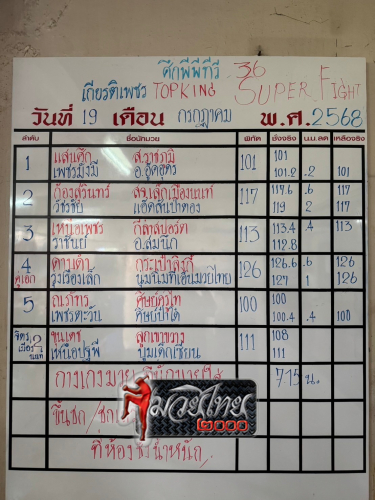 ศึกพีพีทีวี 36
เกียรติเพชร TOPKING SUPER FIGHT
วันที่ 19 เดือน กรกฎาคม พ.ศ. 2568
ลำดับ ชื่อนักมวย พิกัด ชั่งจริง น.น.ลด เหลือจริง
1 แสนศึก ส.วรชภูมิ 101 101
เพชรมุ้งมิ้ง อ.อุดอุดร 101.2 .2 101
2 ก้องสุรินทร์ สจ.เล็กเมืองนนท์ 117 117.6 .6 117
รัชรชัย แอ๊ดสันป่าตอง 119 2 117
3 เหนือเพชร กีล่าสปอร์ต 113 113.4 .4 113
ราชันย์ อ.สมนึก 112.8
4 ดางดำ กระเป๋าสิงห์ 126 126.6 .6 126
คู่เอก วุ่งเรืองเล็ก นุ่มนิ่มที่เฮ็นมวยไทย 127 1 126
5 ณภัทร ศิษย์ครูโท 100 100
เพชรตะวัน ศิษย์ป๋าใต้ 100.4 .4 100
ขุนเดช ลูกเขาขวาง 111 108
เหนือปฐพี บุ๋มเด็กเซียน 111
715 น.
มวยไทย
๒๐๐๐
ที่ห้องชั่งน้ำหนัก